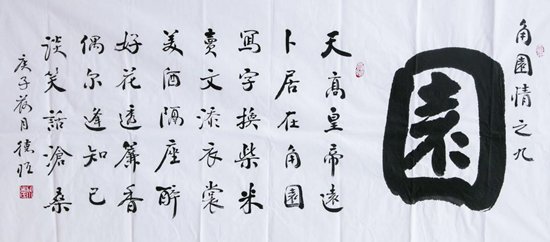 角園情之九
園
天高皇帝遠
卜居在角園
寫字換柴米
賣文添衣裳
美酒隔座醉
好花透簾香
偶尔逢知己
談笑話滄桑
庚子荷月德恒